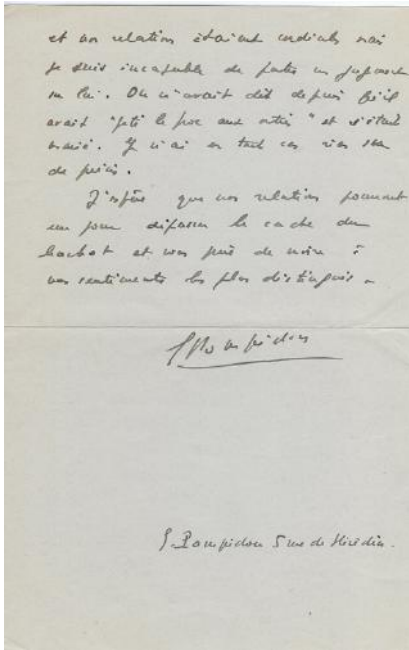 et nos relations étaient cordiales mais
je suis incapable de porter un jugement
sur lui. On m'avait dit depuis qu'il
avait "jeté le froc aux orties" et s'était
marié. Je n'ai en tout cas rien su
de précis.
J'espère que nos relations pourront
un jour dépasser le cadre du
bachot et vous prie de croire à
mes sentiments les plus distingués.
GPompidou
G. Pompidou 5 rue de Hérédia.